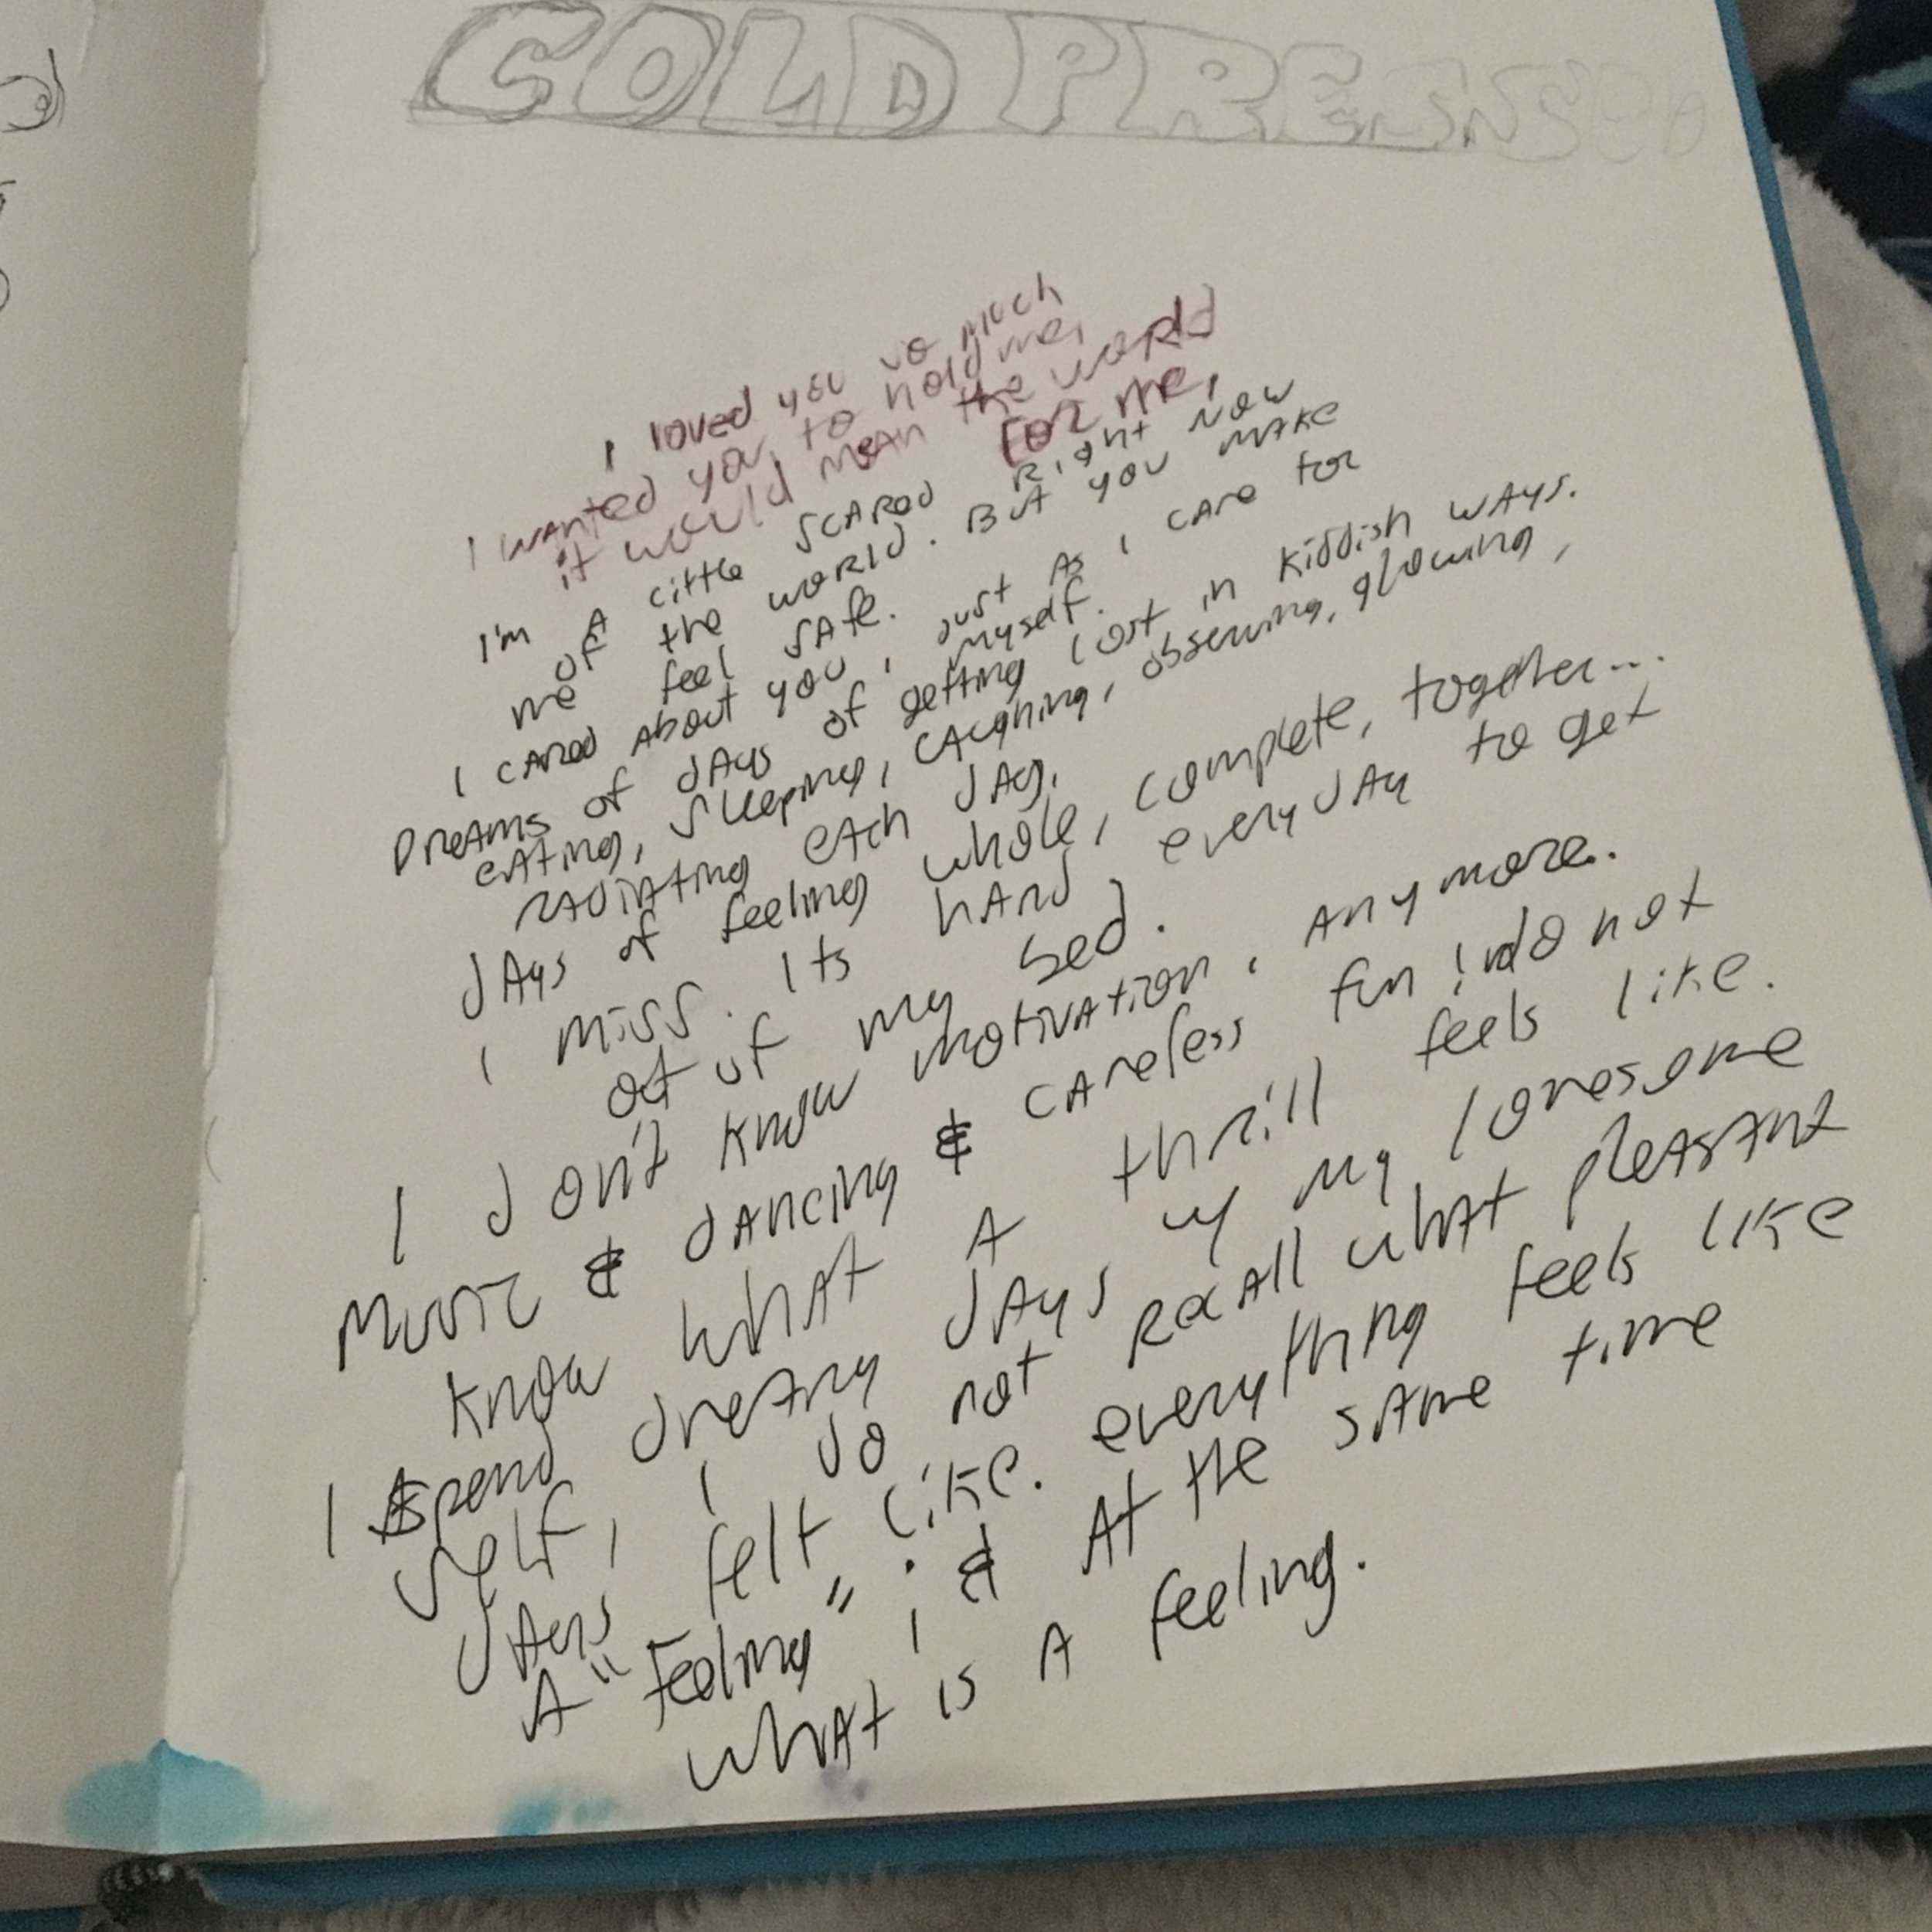 COLD PRESSED
I loved you so much
I wanted you, to hold me,
it would mean the world
FOR me,
I'm A little SCARED Right Now
of the world. But you make
me feel SAfe.
I CARED About you, just As I CARE for
myself.
DreAms of dAys of getting lost in kiddish WAYS.
eAting, sleeping, lAughing, observing, glowing,
RADiAting eAch dAy.
dAys of feeling whole, complete, together...
I miss. Its hArd everydAy to get
out of my bed.
I don't know motivAtion, Anymore.
Music & dAncing & CAreless fun! I do not
know whAt A thrill feels like.
I spend dreAry dAys w/ my lonesome
self, I do not RecAll whAt pleAsAnt
dAys felt like. everything feels like
A "Feeling" ; & At the sAme time
, whAt is A feeling.